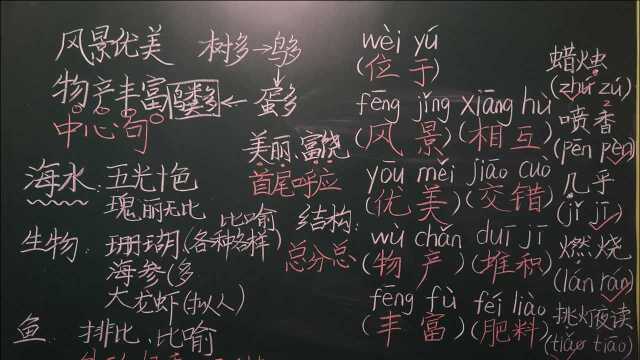 风景优美 树多→鸟多
物产丰富 鸟粪多 ← 蛋多
中心句
美丽、富饶
首尾呼应
海水:五光十色
瑰丽无比
比喻
生物:珊瑚(各种各样)
海参(多
大龙虾(拟人)
鱼 排比、比喻
结构:
总分总
wèi yú
(位于)
fēng jǐng xiāng hù
(风景)(相互)
yōu měi jiāo cuò
(优美)(交错)
wù chǎn duī jī
(物产)(堆积)
fēng fù féi liào
(丰富)(肥料)
蜡烛
(zhú zú)
喷香
(pēn pèn)
几乎
(jǐ jī)
燃烧
(lán rán)
挑灯夜读
(tiǎo tiāo)